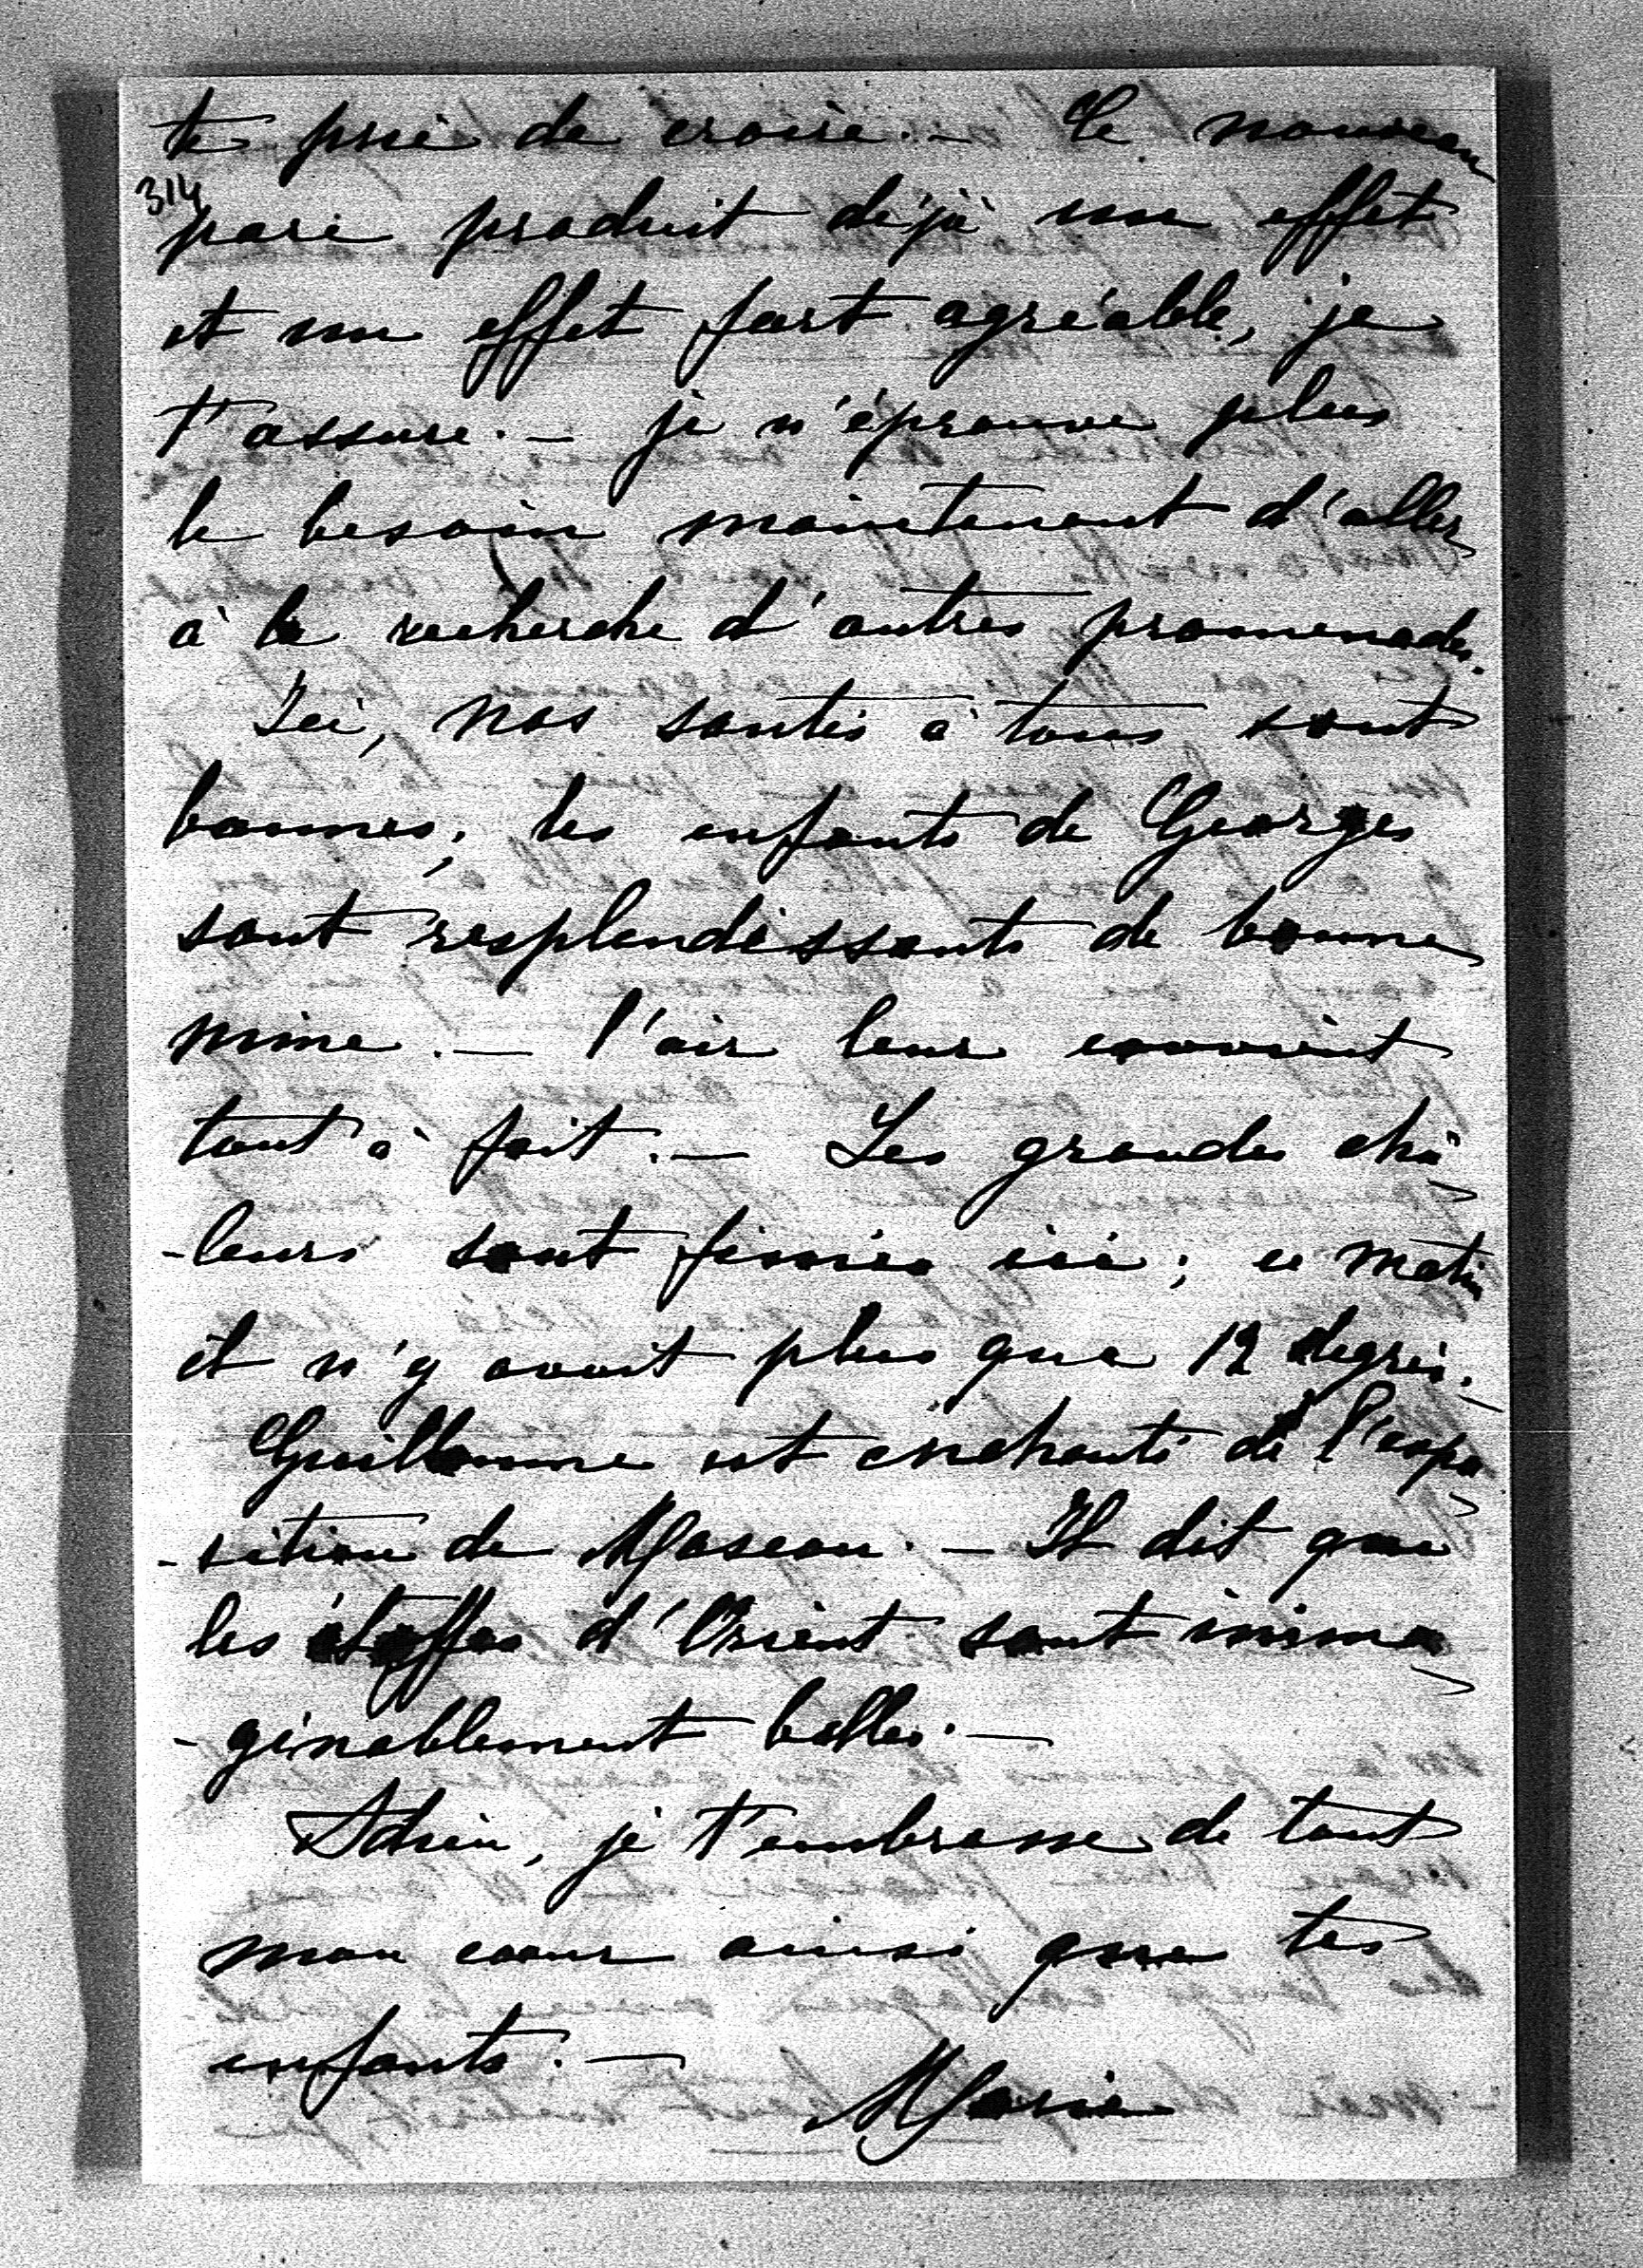 te prie de croire. — Le nouveau
314
parc produit déjà un effet
et un effet fort agréable, je
t'assure. — je n'éprouve plus
le besoin maintenant d'aller
à la recherche d'autres promenades.
Ici, nos santés à tous sont
bonnes; les enfants de Georges
sont resplendissants de bonne
mine. — l'air leur convient
tout à fait. — Les grandes cha-
-leurs sont finies ici; ce matin
il n'y avait plus que 12 degrés. —
Guillaume est enchanté de l'expo-
-sition de Moscou. — Il dit que
les étoffes d'Orient sont inima-
-ginablement belles. —
Adieu, je t'embrasse de tout
mon cœur ainsi que tes
enfants. —
Marie